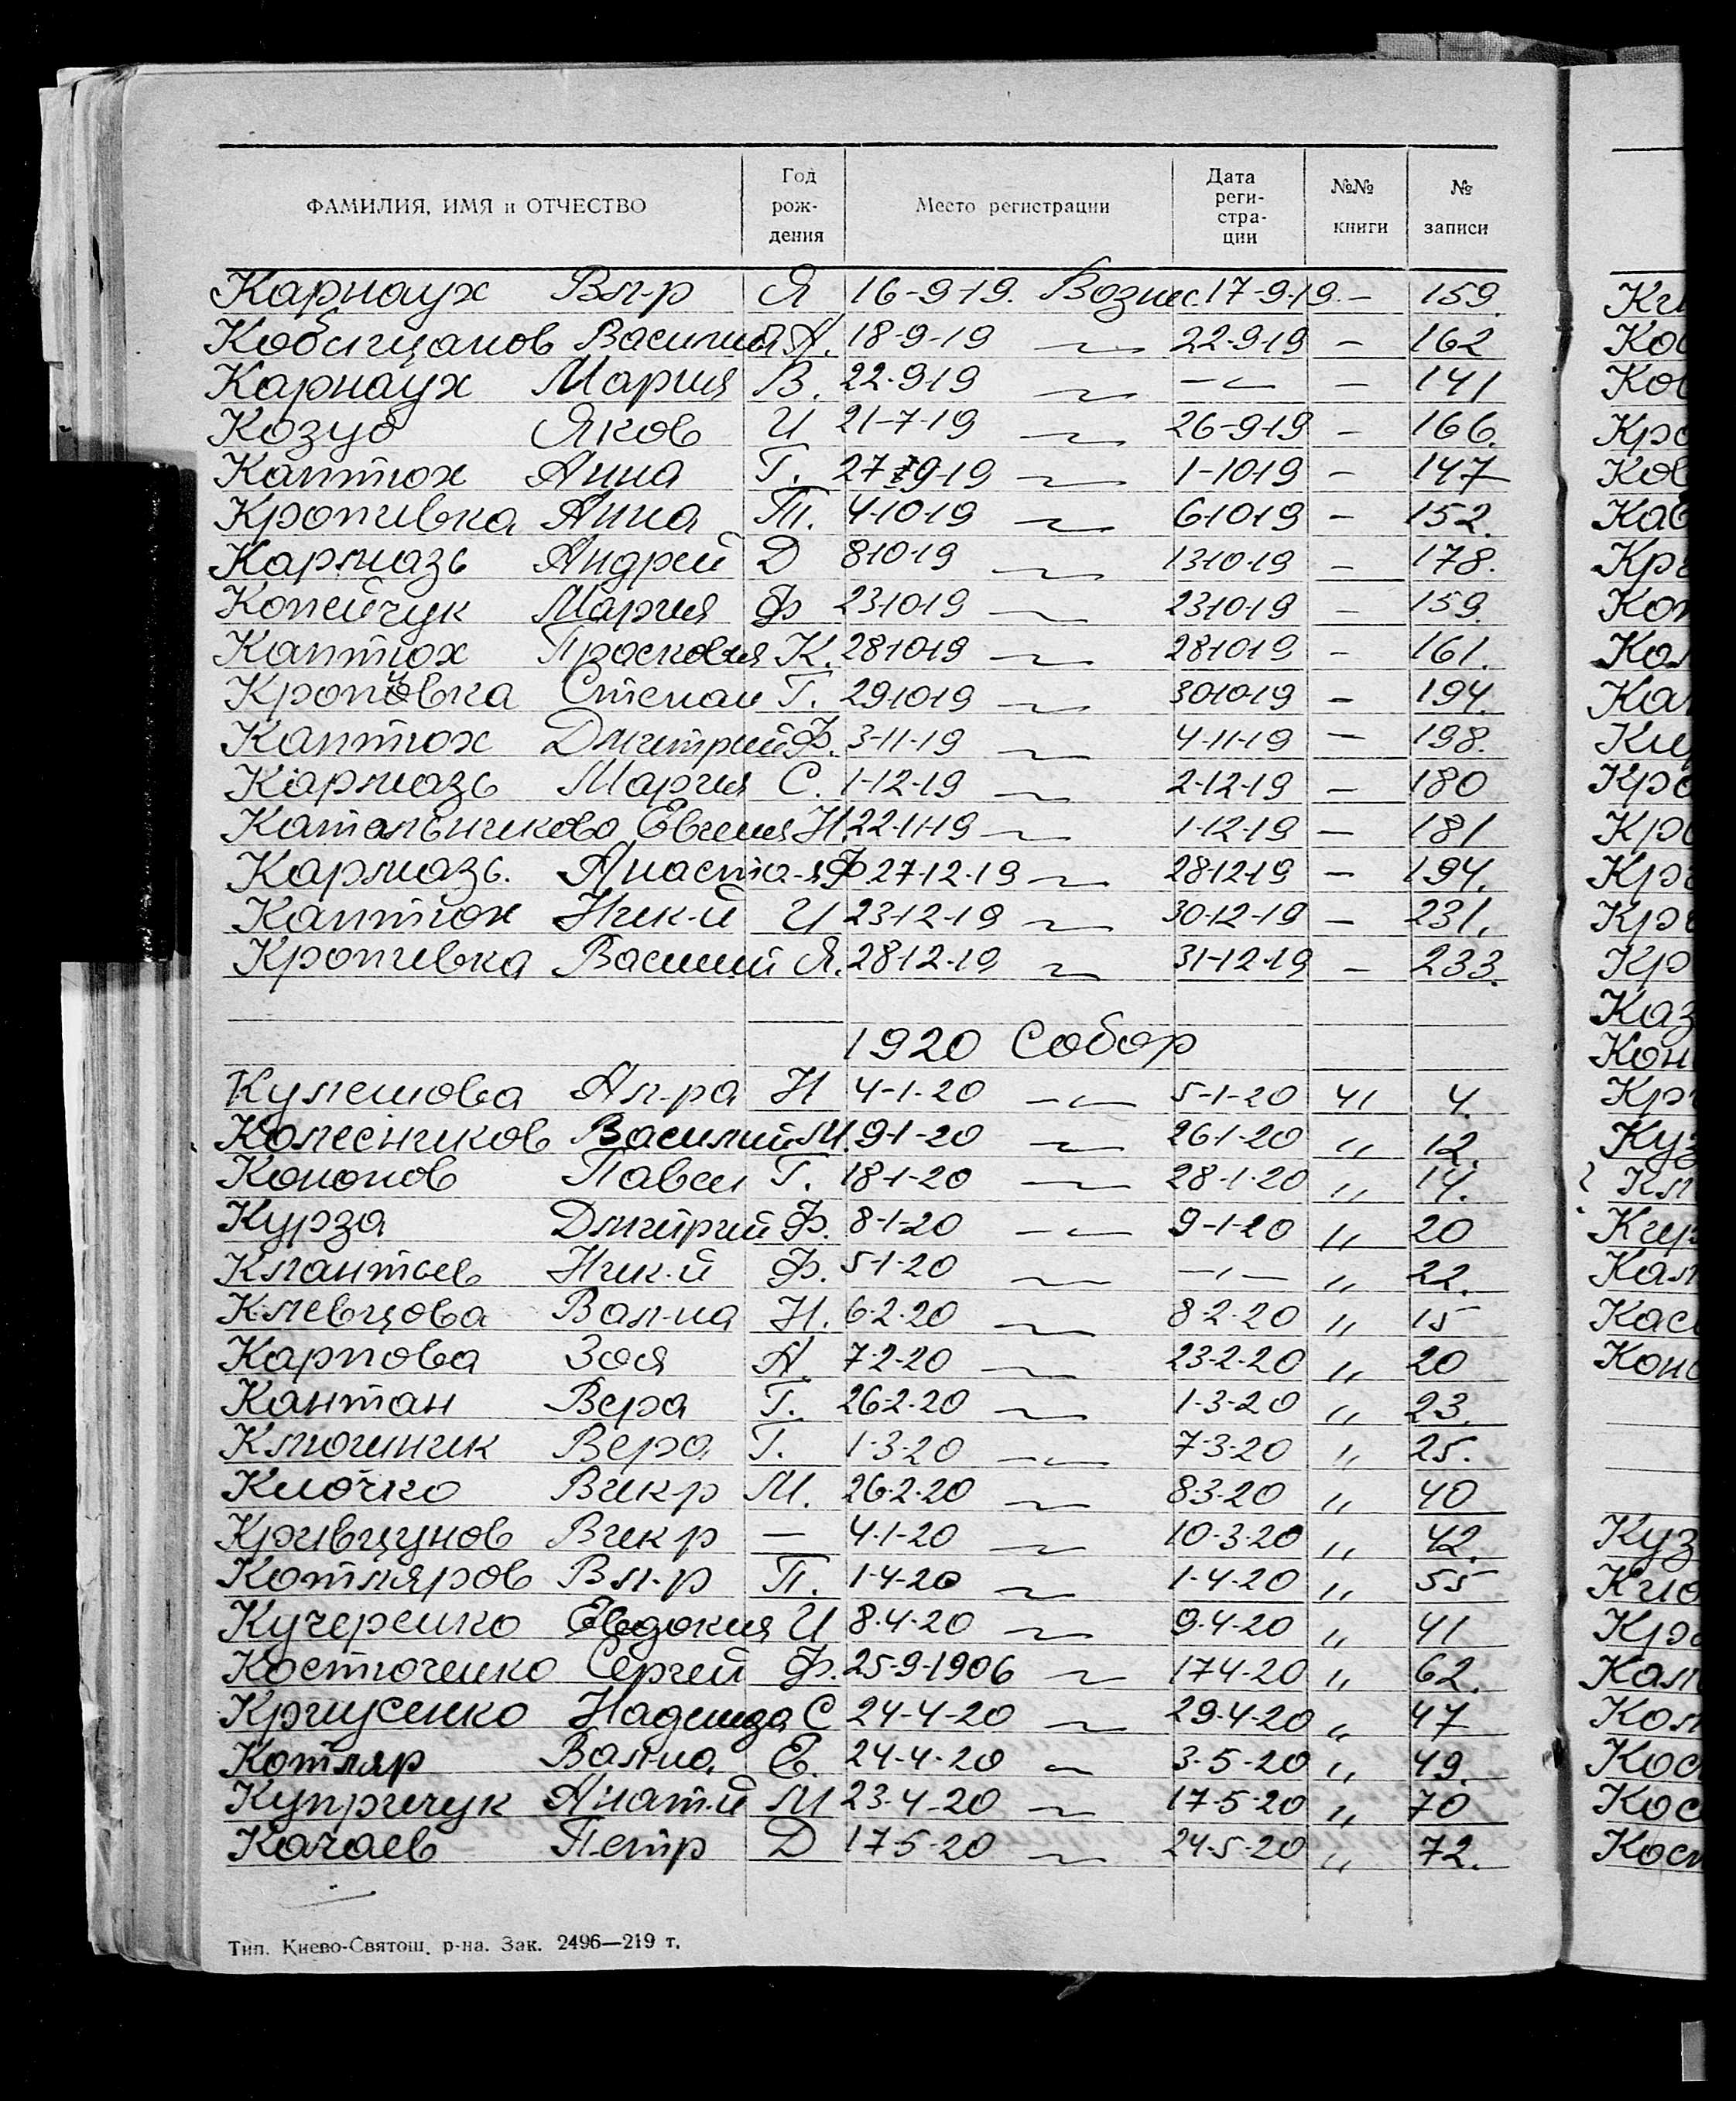 ФАМИЛИЯ, ИМЯ и ОТЧЕСТВО Год рож-дения Место регистрации Дата реги-стра-ции №№ книги № записи
Карнаух Вл-р Я 16-9-19. Вознес. 17-9-19. – 159.
Кобыщанов Василий А. 18-9-19 〃 22-9-19 – 162
Карнаух Мария В. 22-9-19 〃 –〃– – 141
Козуб Яков И 21-7-19 〃 26-9-19 – 166.
Каптюх Анна Г. 27-9-19 〃 1-10-19 – 147
Кропивка Анна Т. 4-10-19 〃 6-10-19 – 152.
Кармазь Андрей Д 8-10-19 〃 13-10-19 – 178.
Копейчук Мария Ф 23-10-19 〃 23-10-19 – 159.
Каптюх Прасковия К. 28-10-19 〃 28-10-19 – 161.
Кропивка Степан Г. 29-10-19 〃 30-10-19 – 194.
Каптюх Дмитрий Ф. 3-11-19 〃 4-11-19 – 198.
Кармазь Мария С. 1-12-19 〃 2-12-19 – 180
Катальникова Евгения Н. 22-11-19 〃 1-12-19 – 181
Кармазь. Анаста-я Ф 27-12-19 〃 28-12-19 – 194.
Каптюх Ник-й И 23-12-19 〃 30-12-19 – 231.
Кропивка Василий Я. 28-12-19 〃 31-12-19 – 233.
1920 Собор
Кулешова Ал-ра Н 4-1-20 –〃– 5-1-20 41 4.
Колесников Василий М. 9-1-20 〃 26-1-20 〃 12.
Кононов Павел Г. 18-1-20 〃 28-1-20 〃 14.
Курза Дмитрий Ф. 8-1-20 –〃– 9-1-20 〃 20
Клантьев Ник-й Ф. 5-1-20 〃 –〃– 〃 22.
Клевцова Вал-на Н. 6-2-20 〃 8-2-20 〃 15
Карпова Зоя А. 7-2-20 〃 23-2-20 〃 20
Кантан Вера Г. 26-2-20 〃 1-3-20 〃 23.
Ключник Вера Г. 1-3-20 〃 7-3-20 〃 25.
Клочко Вик-р М. 26-2-20 〃 8-3-20 〃 40
Кривцунов Вик-р – 4-1-20 〃 10-3-20 〃 42.
Котляров Вл-р П. 1-4-20 〃 1-4-20 〃 55
Кучеренко Евдокия И 8-4-20 〃 9-4-20 〃 41
Костюченко Сергей Ф. 25-9-1906 〃 17-4-20 〃 62.
Криусенко Надежда С 24-4-20 〃 29-4-20 〃 47
Котляр Вал-на Е. 24-4-20 〃 3-5-20 〃 49.
Купричук Анат-й М 23-4-20 〃 17-5-20 〃 70
Качаев Петр Д 17-5-20 〃 24-5-20 〃 72.
Тип. Киево-Святош. р-на. Зак. 2496—219 т.